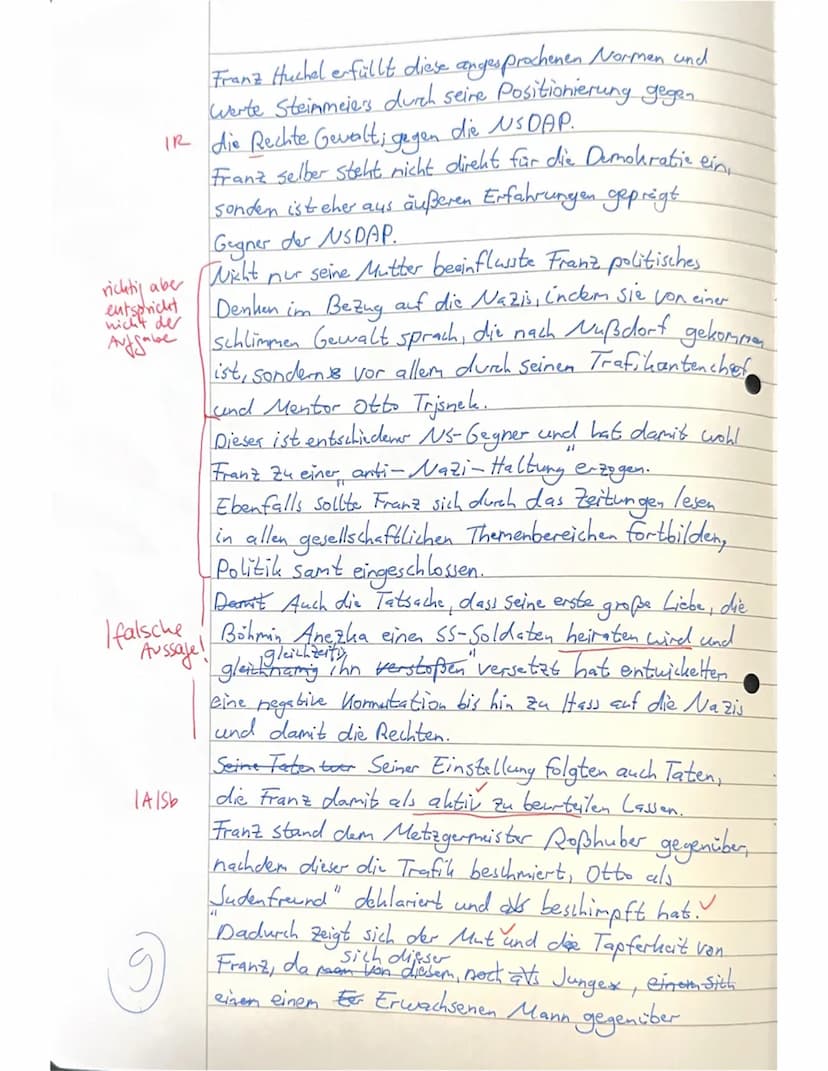 Franz Huchel erfüllt diese angesprochenen Normen und
Werte Steinmeiers durch seine Positionierung gegen
IR
die Rechte Gewalt; gegen die NSDAP.
Franz selber steht nicht direkt für die Demokratie ein,
sondern ist eher aus äußeren Erfahrungen geprägt
Gegner der NSDAP.
richtig aber
entspricht
nicht der
Aufgabe
Nicht nur seine Mutter beeinflusste Franz politisches
Denken im Bezug auf die Nazis, indem sie von einer
schlimmen Gewalt sprach, die nach Nußdorf gekommen
ist, sondern vor allem durch seinen Trafikantenchef
und Mentor Otto Trjsnek.
Dieser ist entschiedener NS-Gegner und hat damit wohl
Franz zu einer „anti-Nazi-Haltung" erzogen.
Ebenfalls sollte Franz sich durch das Zeitungen lesen
in allen gesellschaftlichen Themenbereichen fortbilden,
Politik samt eingeschlossen.
Damit Auch die Tatsache, dass seine erste große Liebe, die
falsche
Aussage!
Böhmin Anezka einen SS-Soldaten heiraten wird und
gleichzeitig
gleichnamig ihn verstoßen "versetzt hat entwickelten
eine negative Konnutation bis hin zu Hass auf die Nazis
und damit die Rechten.
Seine Taten Seiner Einstellung folgten auch Taten,
IAISb
die Franz damit als aktiv zu beurteilen lassen.
Franz stand dem Metzgermeister Roßhuber gegenüber,
nachdem dieser die Trafik beschmiert, Otto als
„Judenfreund" deklariert und als beschimpft hat.
Dadurch zeigt sich der Mut und die Tapferkeit von
sich dieser
Franz, da man von diesem, noch als Junge, einem sich
einen einem Er Erwachsenen Mann gegenüber
9